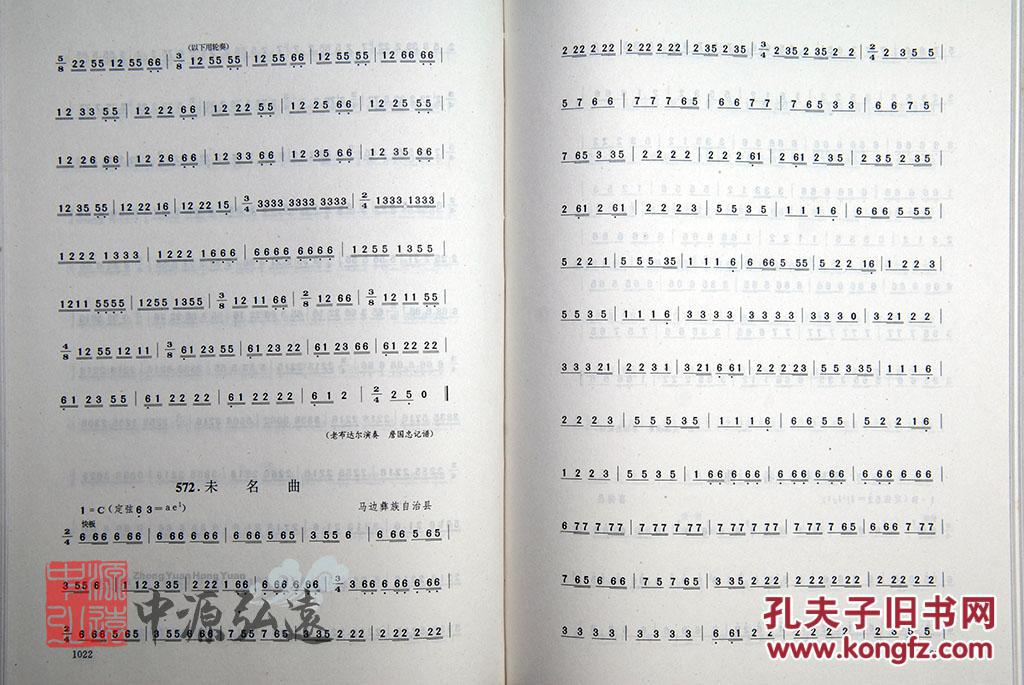 (以下用轮奏)
5/8 22 55 12 55 66 | 3/8 12 55 55 | 12 55 66 | 12 55 55 | 12 66 66 |
12 33 55 | 12 22 66 | 12 22 55 | 12 25 66 | 12 25 55 |
12 26 66 | 12 22 66 | 12 33 66 | 12 35 66 | 12 35 66 |
12 35 55 | 12 22 16 | 12 22 15 | 3/4 3333 3333 3333 | 2/4 1333 1333 |
1222 1333 | 1222 1666 | 6666 6666 | 1255 1355 |
1211 5555 | 1255 1355 | 3/8 12 11 66 | 2/8 12 66 | 3/8 12 11 55 |
4/8 12 55 12 11 | 3/8 61 23 55 | 61 23 22 | 61 23 66 | 61 22 22 |
61 23 55 | 61 22 22 | 61 22 22 | 61 2 | 2/4 2 5 0 ‖
(老布达尔演奏 詹国忠记谱)
572.未 名 曲
1=C(定弦6 3=ae¹) 马边彝族自治县
快板
2/4 6 66 6 66 | 6 66 6 66 | 6 66 5 65 | 3 55 6 | 6 66 5 65 |
3 55 6 | 1 12 3 35 | 2 22 1 66 | 6 66 6 66 | 3/4 3 66 6 66 6 66 |
2/4 6 66 5 65 | 3 55 6 66 | 7 55 7 65 | 3 235 2 22 | 2 22 2 22 |
1022
2 22 2 22 | 2 22 2 22 | 2 35 2 35 | 3/4 2 35 2 35 2 2 | 2/4 2 3 5 5 |
5 7 6 6 | 7 7 7 65 | 6 6 7 7 | 7 65 3 3 | 6 6 7 5 |
7 65 3 35 | 2 2 2 2 | 2 2 2 61 | 2 61 2 35 | 2 35 2 35 |
2 61 2 61 | 2 2 2 3 | 5 5 3 5 | 1 1 1 6 | 6 66 5 55 |
5 2 2 1 | 5 5 3 5 | 1 1 1 6 | 6 66 5 55 | 5 2 2 16 | 1 2 2 3 |
5 5 3 5 | 1 1 1 6 | 3 3 3 3 | 3 3 3 3 | 3 3 3 0 | 3 21 2 2 |
3 3 3 21 | 2 2 3 1 | 3 21 6 61 | 2 2 2 3 | 5 5 35 35 | 1 1 1 6 |
2 2 2 3 | 5 5 3 5 | 1 1 1 6 | 6 6 5 5 | 5 2 2 16 |
1 2 2 3 | 5 5 3 5 | 1 66 6 66 | 6 66 6 66 | 6 66 6 66 |
6 77 7 77 | 7 77 7 77 | 7 77 7 77 | 7 77 7 77 | 6 66 7 77 |
7 65 6 66 | 7 5 7 65 | 3 35 2 22 | 2 22 2 22 | 2 22 2 22 |
3 3 3 3 | 3 3 3 3 | 6 61 2 2 | 2 2 2 2 | 2 3 5 5 |
中源弘远
Zhong Yuan Hong Yuan
中源弘远
孔夫子旧书网
www.kongfz.com